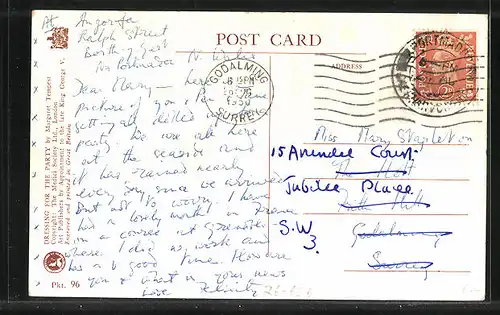 At Angorfa
Ralph Street
Borth y Gest
Nr Portmadoc
N. Wales
POST CARD
ADDRESS
GODALMING
SURREY
1950
PORTMADOC
CAERNARVONSHIRE
Dear Mary – here
picture of you & Pen
getting dolled
party! We are all here
at the seaside and
it has rained nearly
every day since we arrived
But not to worry. I have
had a lovely month in France
on a course at Grenoble
there. I did work and
had a good time. How are
you & what is your news
Love Felicity
Miss Mary Stapleton
15 Arundel Court
Jubilee Place
S.W.
3.
Godalming
Surrey
DRESSING FOR THE PARTY by Margaret Tempest
Copyright: The Medici Society Ltd., London
Art Publishers by Appointment to the late King George V.
Reserved and printed in Great Britain
Pkt. 96